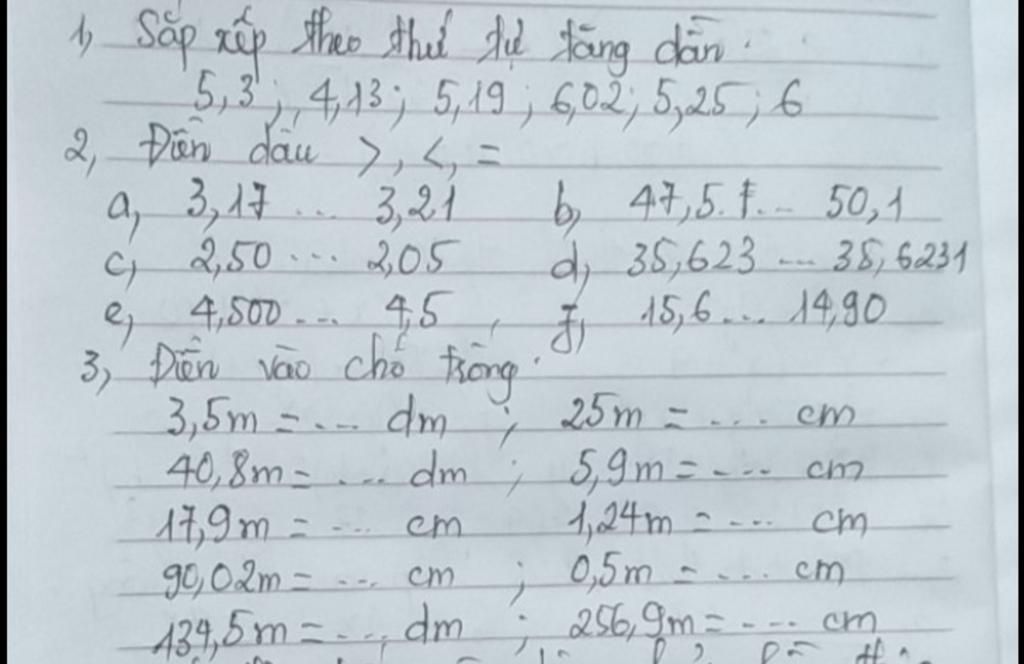 1, Sắp xếp theo thứ tự tăng dần.
5,3 ; 4,13 ; 5,19 ; 6,02 ; 5,25 ; 6
2, Điền dấu >, <, =
a, 3,17 ... 3,21 b, 47,5 ... 50,1
c, 2,50 ... 2,05 d, 35,623 ... 35,6231
e, 4,500 ... 4,5 , f, 15,6 ... 14,90
3, Điền vào chỗ trống.
3,5m = ... dm ; 25m = ... cm
40,8m = ... dm ; 5,9m = ... cm
17,9m = ... cm 1,24m = ... cm
90,02m = ... cm ; 0,5m = ... cm
134,5m = ... dm ; 256,9m = ... cm